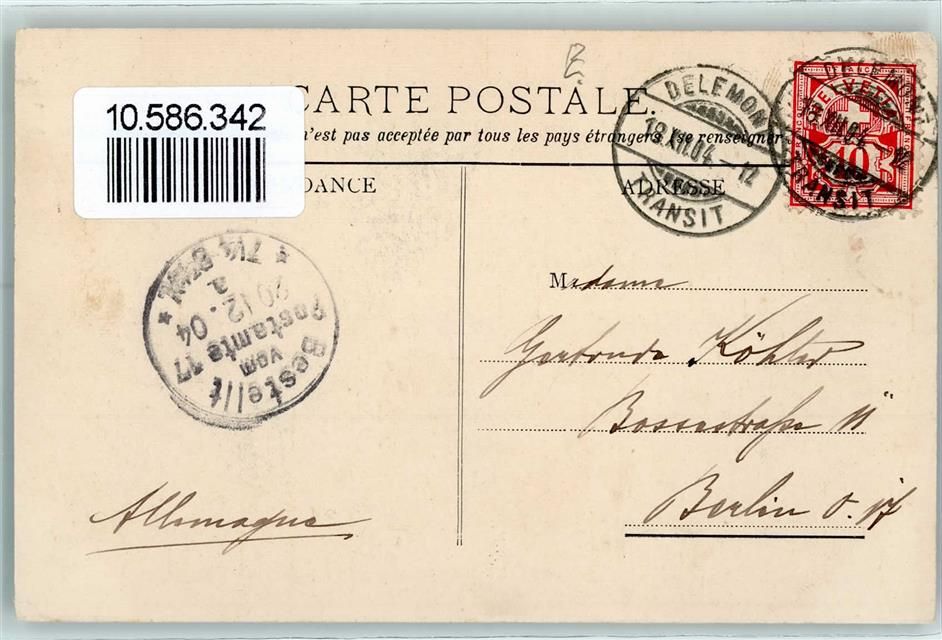 10.586.342
CARTE POSTALE.
n'est pas acceptée par tous les pays étrangers. (se renseigner
DANCE
ADRESSE
DELEMONT
19.XII.04. – 12
TRANSIT
DELEMONT
HELVETIA
XII.04. – 12
10
TRANSIT
Bestellt
vom
Postamte 17
20.12.04
7¼-8¼ N.
Madame
Gertrude Köhler
Bossestraße 11
Berlin O. 17
Allemagne